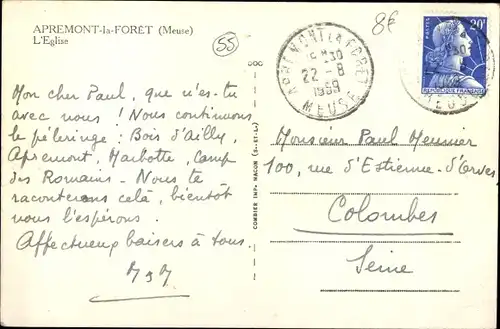 APREMONT-la-FORÊT (Meuse)
L'Eglise
55
8€
APREMONT LA FORET
15 H 30
22 - 8
1959
MEUSE
POSTES
20F
RÉPUBLIQUE FRANÇAISE
MEUSE
Mon cher Paul, que n'es-tu
avec nous ! Nous continuons
le pélerinage : Bois d'Ailly,
Apremont, Marbotte, Camp
des Romains - Nous te
raconterons celà, bientôt
nous l'espérons.
Affectueux baisers à tous.
COMBIER IMP. MACON (S.-ET-L.)
Monsieur Paul Meunier
100, rue d'Estienne-d'Orves
Colombes
Seine